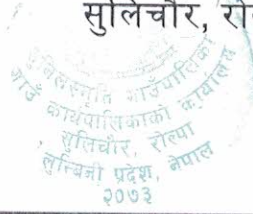 सुलिचौर, रो
सुनिलस्मृति गाउँपालिका
गाउँ कार्यपालिकाको कार्यालय
सुलिचौर, रोल्पा
लुम्बिनी प्रदेश, नेपाल
२०७३